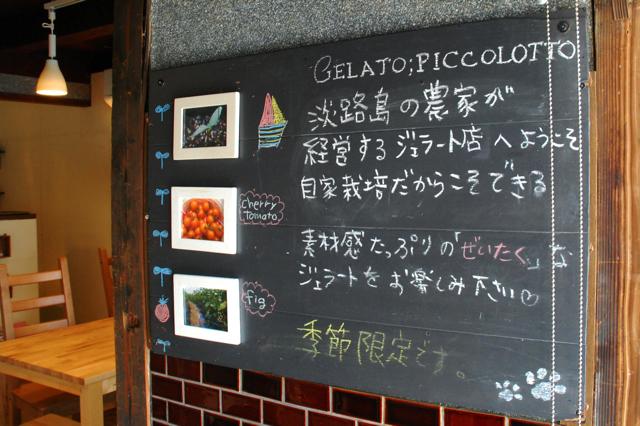 GELATO;PICCOLOTTO
淡路島の農家が
経営するジェラート店へようこそ
自家栽培だからこそできる
cherry
tomato
素材感たっぷりの「ぜいたく」な
ジェラートをお楽しみ下さい♡
fig
季節限定です。